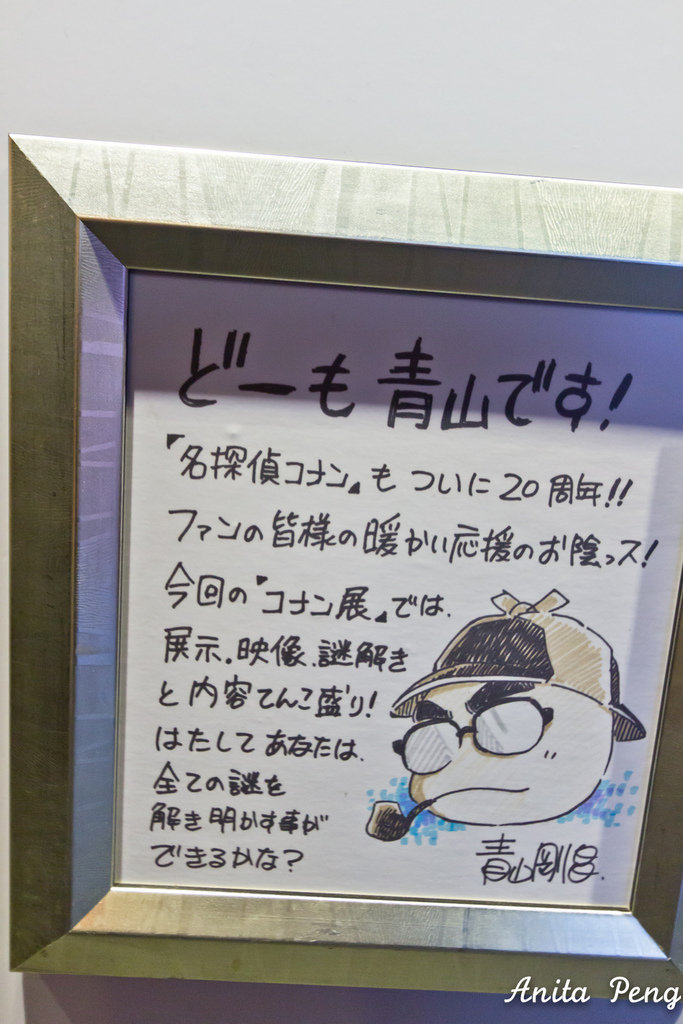 どーも青山です!
『名探偵コナン』もついに20周年!!
ファンの皆様の暖かい応援のお陰っス!
今回の『コナン展』では、
展示、映像、謎解き
と内容てんこ盛り!
はたしてあなたは、
全ての謎を
解き明かす事が
できるかな?
青山剛昌.
Anita Peng